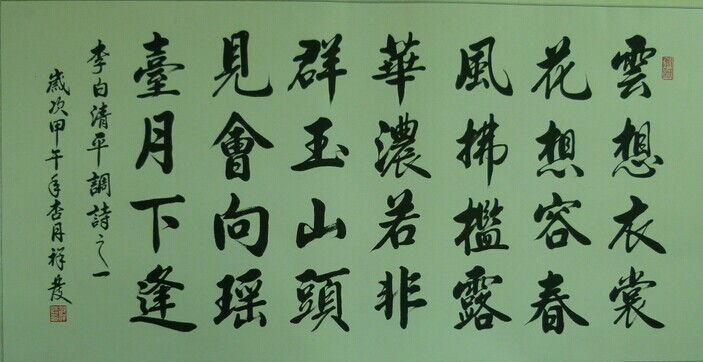 雲想衣裳
花想容春
風拂檻露
華濃若非
群玉山頭
見會向瑶
臺月下逢
李白清平調詩之一
歲次甲午年杏月祥發